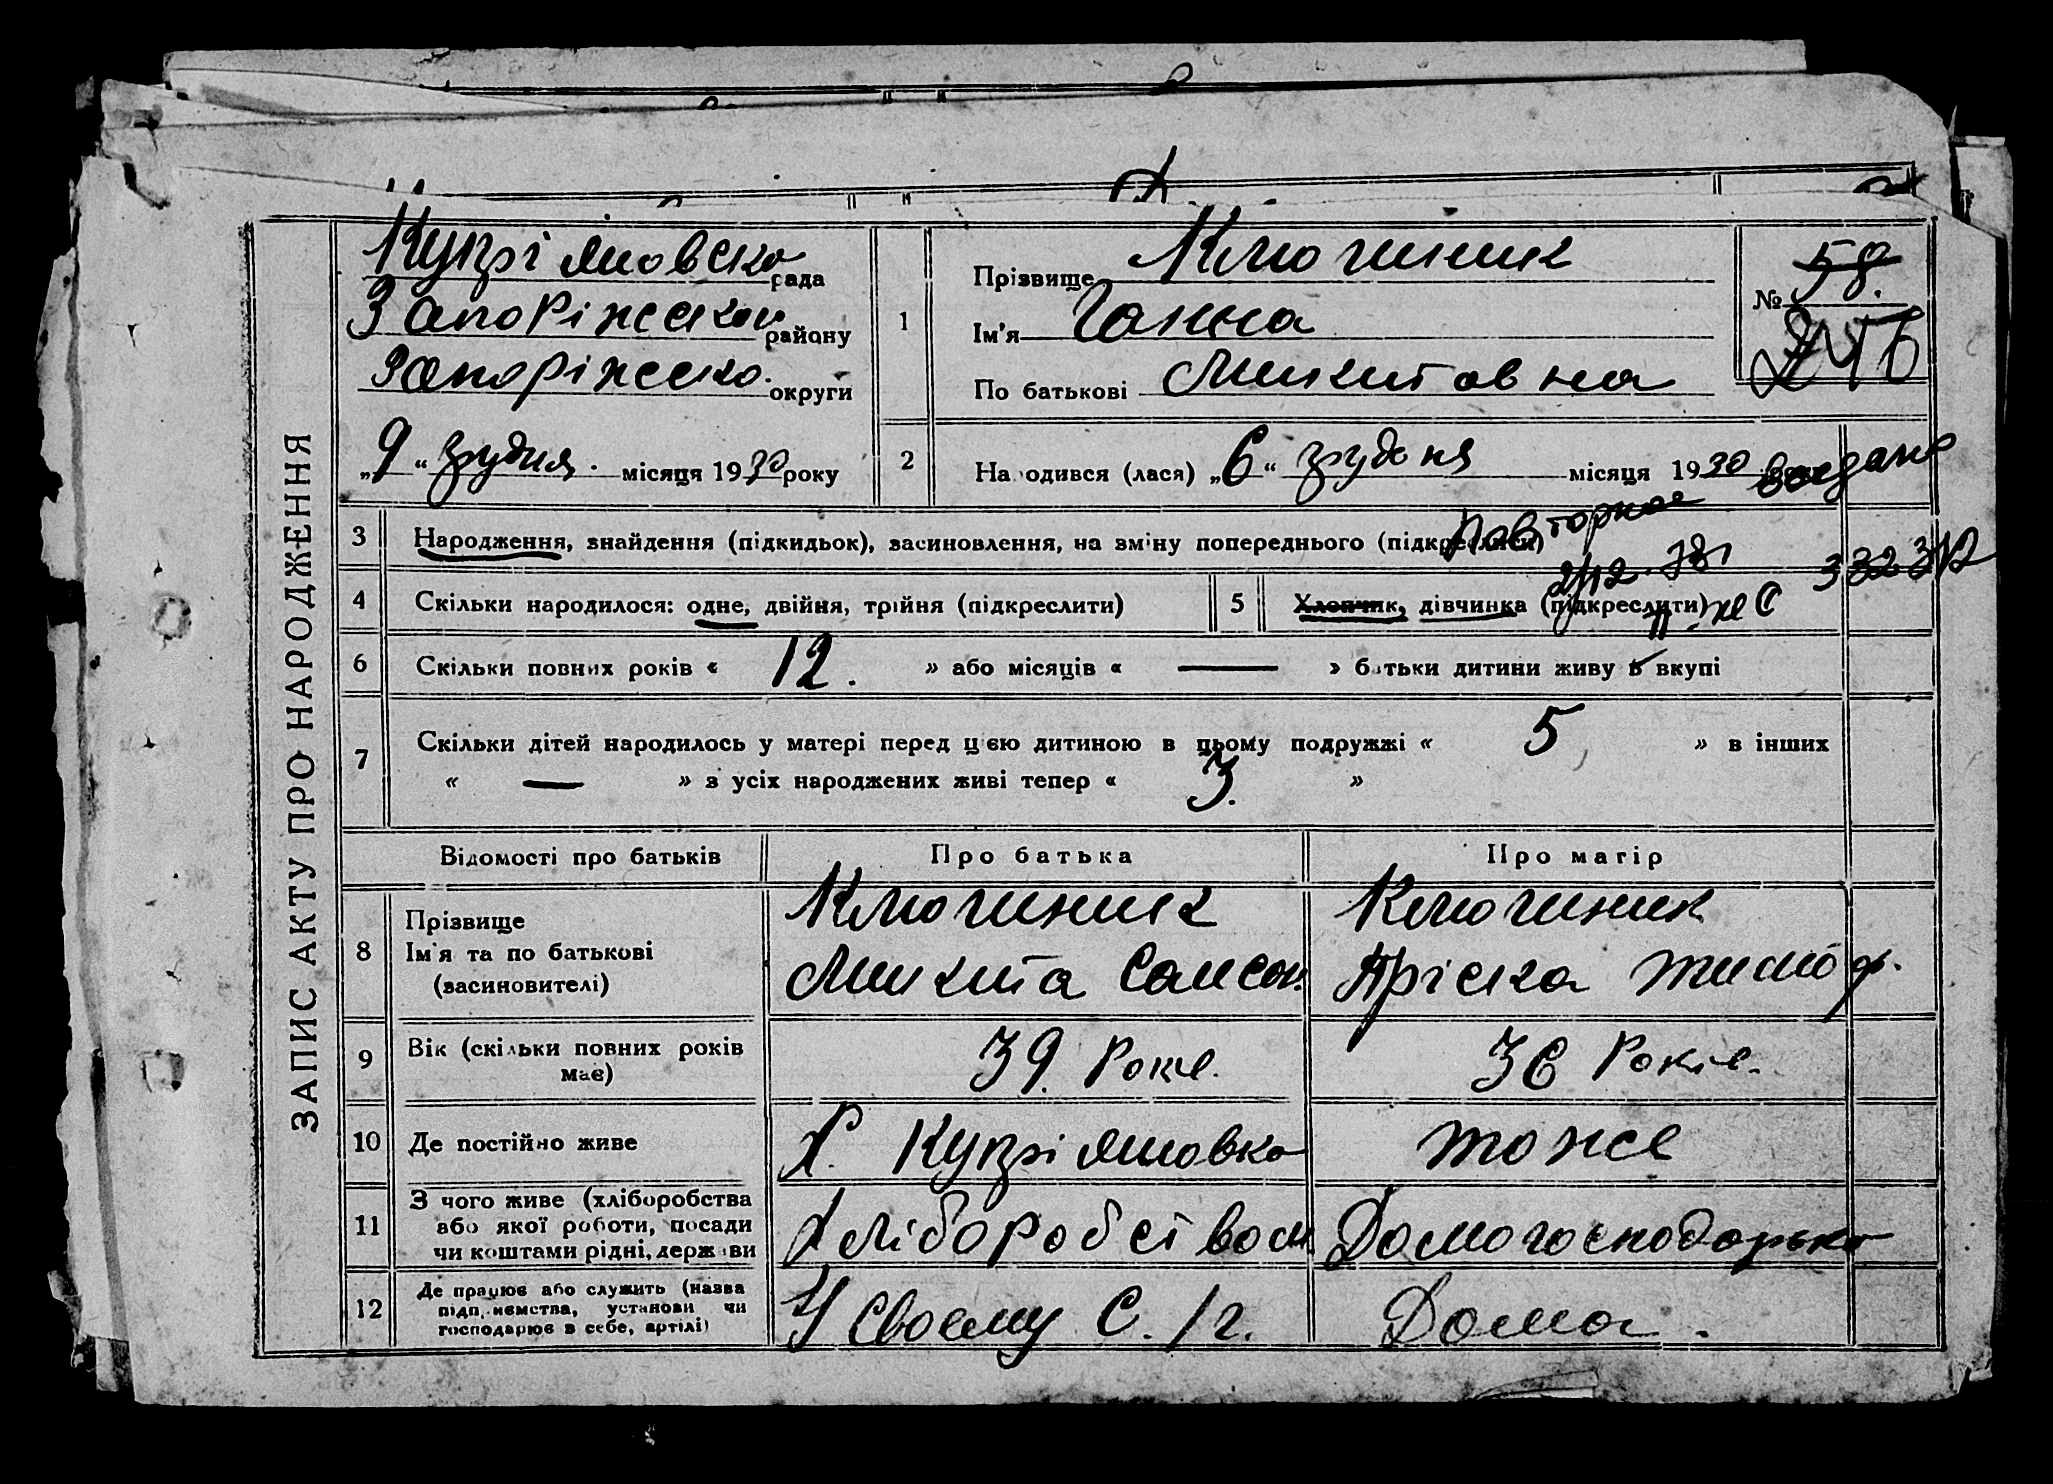 ЗАПИС АКТУ ПРО НАРОДЖЕННЯ
Купріяновска рада
Запоріжської району
Запоріжско. округи
„9“ грудня. місяця 1930 року
1
Прізвище Ключник
Ім'я Ганна
По батькові Микитовна
№ 58.
2
Народився (лася) „6“ грудня місяця 1930
видано
Повторное
3 Народження, знайдення (підкидьок), засиновлення, на зміну попереднього (підкреслити)
4 Скільки народилося: одне, двійня, трійня (підкреслити)
5 Хлопчик, дівчинка (підкреслити)
6 Скільки повних років « 12. » або місяців « — » батьки дитини живуть вкупі
7 Скільки дітей народилось у матері перед цією дитиною в цьому подружжі « 5 » в інших
« — » з усіх народжених живі тепер « 3. »
Відомості про батьків Про батька Про матір
8 Прізвище
Ім'я та по батькові
(засиновителі)
Ключник
Микита Самсон.
Ключник
Пріска Тимоф.
9 Вік (скільки повних років
має)
39. Років.
36 Років.
10 Де постійно живе
Х. Купріяновка
тоже
11 З чого живе (хліборобства
або якої роботи, посади
чи коштами рідні, держави
Хліборобством
Домогосподарька
12 Де працює або служить (назва
підприємства, установи чи
господарює в себе, артілі)
У Своєму С./г.
Дома.